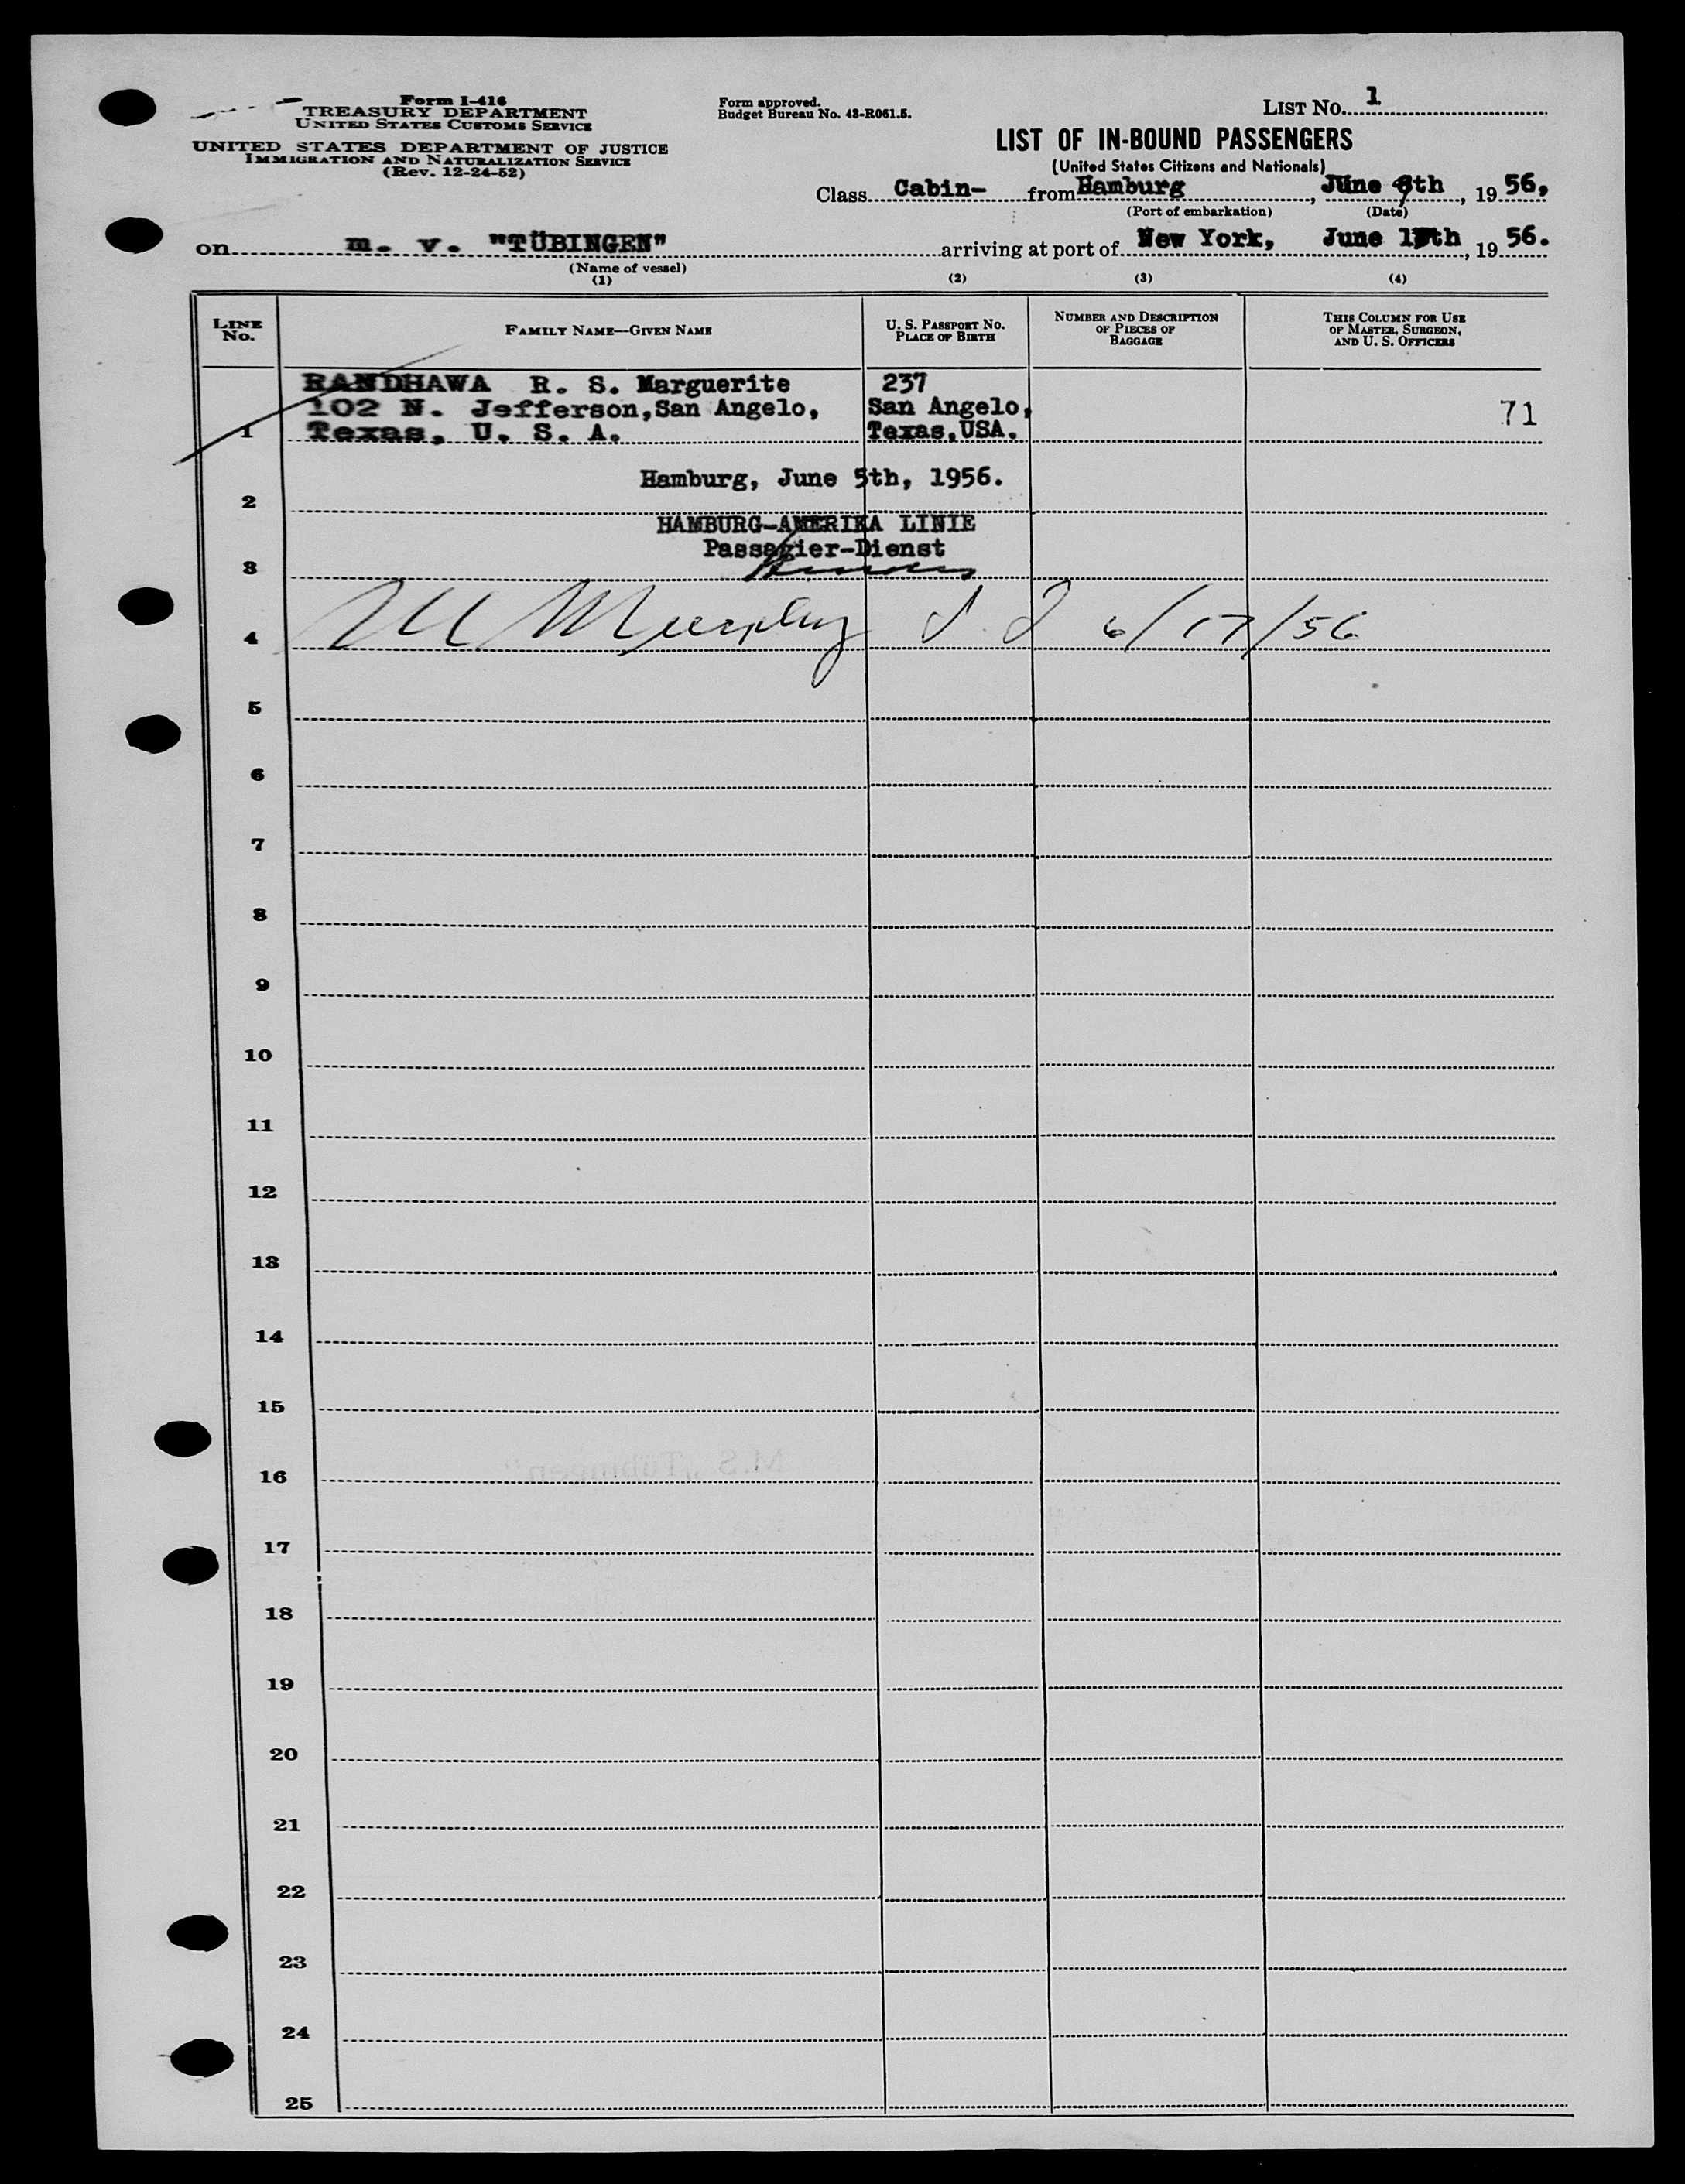 Form I-416
TREASURY DEPARTMENT
UNITED STATES CUSTOMS SERVICE
UNITED STATES DEPARTMENT OF JUSTICE
IMMIGRATION AND NATURALIZATION SERVICE
(Rev. 12-24-52)
Form approved.
Budget Bureau No. 43-R061.5.
LIST No. 1
LIST OF IN-BOUND PASSENGERS
(United States Citizens and Nationals)
Class Cabin- from Hamburg, June th, 1956,
(Port of embarkation) (Date)
on m. v. "TÜBINGEN" arriving at port of New York, June 17th, 1956.
(Name of vessel)
(1) (2) (3) (4)
LINE No. FAMILY NAME—GIVEN NAME U. S. PASSPORT No. PLACE OF BIRTH NUMBER AND DESCRIPTION OF PIECES OF BAGGAGE THIS COLUMN FOR USE OF MASTER, SURGEON, AND U. S. OFFICERS
RANDHAWA R. S. Marguerite 237
102 N. Jefferson, San Angelo, San Angelo, 71
1 Texas, U. S. A. Texas, USA.
Hamburg, June 5th, 1956.
2
HAMBURG-AMERIKA LINIE
Passagier-Dienst
3
4 Murphy 6/17/56
5
6
7
8
9
10
11
12
13
14
15
M.S. „Tübingen"
16
17
18
19
20
21
22
23
24
25